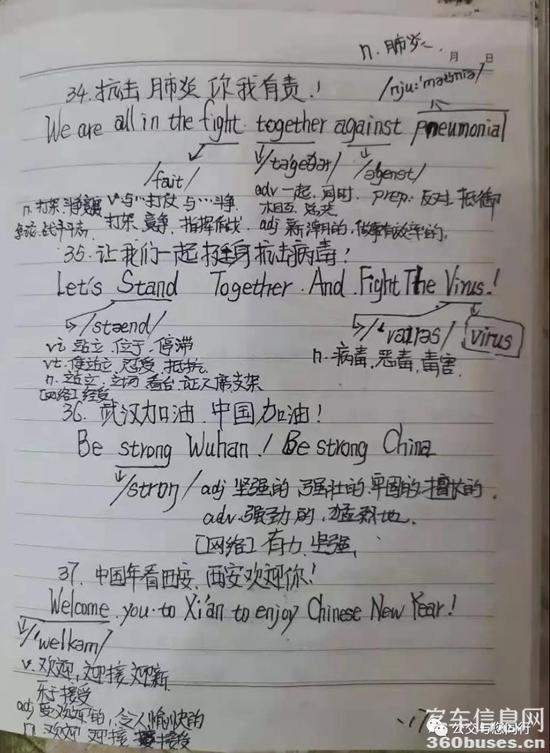 n. 肺炎
月 日
34. 抗击肺炎 你我有责!
/nju:'məʊniə/
We are all in the fight together against pneumonial
/fait/ /təgeðər/ /əgenst/
adv 一起, 同时,
prep. 反对, 抵御
打架, 竞争, 指挥作战 adj 新潮的, 做事有效率的.
35. 让我们一起挺身抗击病毒!
Let's Stand Together And Fight The Virus!
/stænd/ /'vaɪrəs/ virus
vi 站立, 位于, 停滞
n. 病毒, 恶毒, 毒害
vt. 使站立, 忍受, 抵抗
n. 站立, 立场, 看台, 证人席, 支架
[网络] 经受
36. 武汉加油, 中国加油!
Be strong Wuhan! Be strong China
/strɒŋ/ adj 坚强的, 强壮的, 牢固的, 擅长的.
adv. 强劲的, 猛烈地.
[网络] 有力, 坚强,
37. 中国年看西安, 西安欢迎你!
Welcome you to Xi'an to enjoy Chinese New Year!
/'welkəm/
v. 欢迎, 迎接, 迎新
乐于接受
adj 受欢迎的, 令人愉快的
n. 欢迎, 迎接, 接受
公交与您同行
客车信息网
360buses.cn